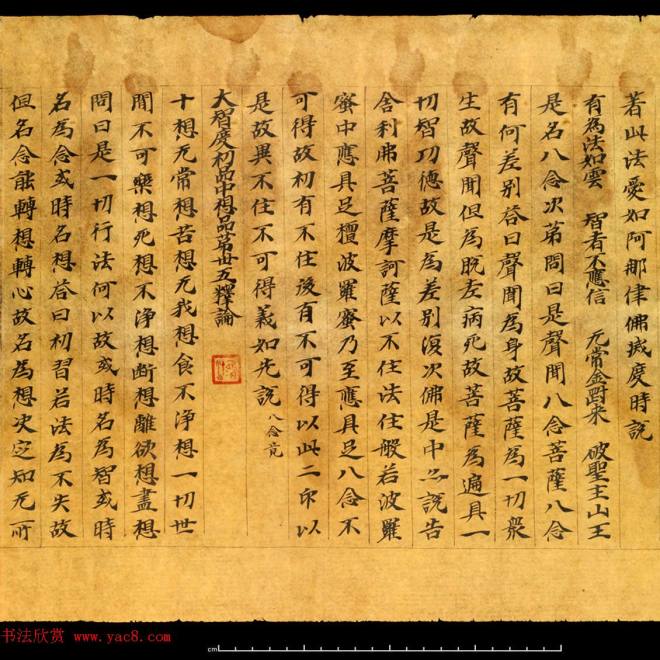 著此法愛如阿那律佛滅度時說
有為法如雲　智者不應信　无常金罰来　破聖主山王
是名八念次第問曰是聲聞八念菩薩八念
有何差别荅曰聲聞為身故菩薩為一切衆
生故聲聞但為脱老病死故菩薩為遍具一
切智功德故是為差别復次佛是中亦說告
舎利弗菩薩摩訶薩以不住法住般若波羅
蜜中應具足檀波羅蜜乃至應具足八念不
可得故初有不住後有不可得以此二印以
是故異不住不可得義如先說 八念竟
大智度初品中想品第卅五釋論
十想无常想苦想无我想食不浄想一切世
間不可樂想死想不浄想断想離欲想盡想
問曰是一切行法何以故或時名為智或時
名為念或時名想荅曰初習若法為不失故
但名念能轉想轉心故名為想决定知无所
书法欣赏 www.yac8.com
cm